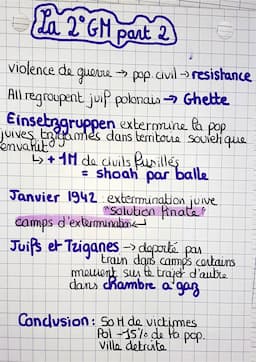 La 2° GM part 2
violence de guerre → pop. civil → resistance
All regroupent juif polonais → Ghette
Einsetzgruppen extermine la pop
juives, tziganes dans territoire soviétique
envahit
↳ + 1M de civils fusillés
= shoah par balle
Janvier 1942 extermination juive
"solution finale"
camps d'extermination
Juifs et Tziganes → deporté par
train dans camps certains
meurent sur le trajet d'autre
dans chambre a gaz
Conclusion : 50 M de victimes
Pol -15% de la pop.
Ville detruite